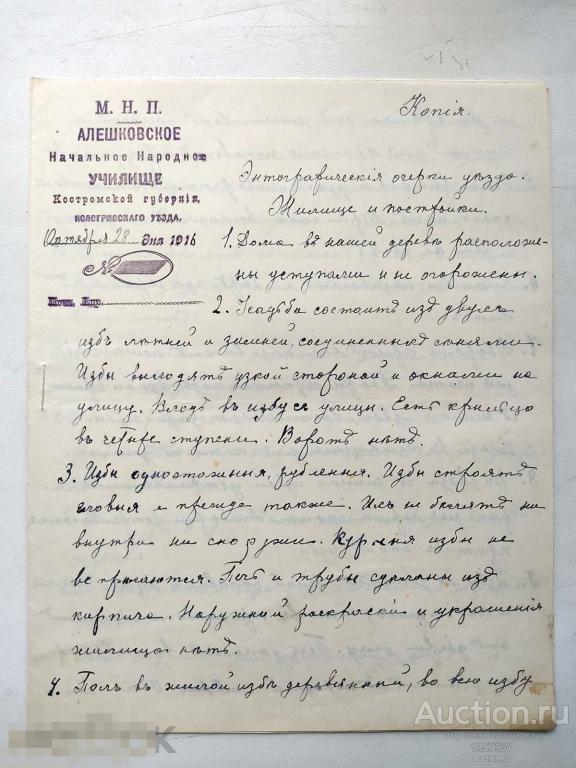 Копія.
М. Н. П.
АЛЕШКОВСКОЕ
Начальное Народное
УЧИЛИЩЕ
Костромской губерніи,
КОЛОГРИВСКАГО УѢЗДА.
Октября 28 дня 1916
№
Энтографическія очерки уѣзда.
Жилище и постройки.
1. Дома въ нашей деревѣ расположе-
ны уступами и не огорожены.
2. Усадьба состоитъ изъ двухъ
избъ лѣтней и зимней, соединенныхъ сѣнями.
Избы выходятъ узкой стороной и окнами на
улицу. Входъ въ избу съ улицы. Есть крыльцо
въ четыре ступени. Воротъ нѣтъ.
3. Избы одноэтажныя, рубленыя. Избы строятъ
еловыя и прежде также. Ихъ не бѣлятъ ни
внутри ни снаружи. Курныя избы не
встрѣчаются. Печь и трубы сдѣланы изъ
кирпича. Наружной раскраски и украшенія
жилища нѣтъ.
4. Полъ въ жилой избѣ деревянный, во всю избу
Auction.ru
13575W